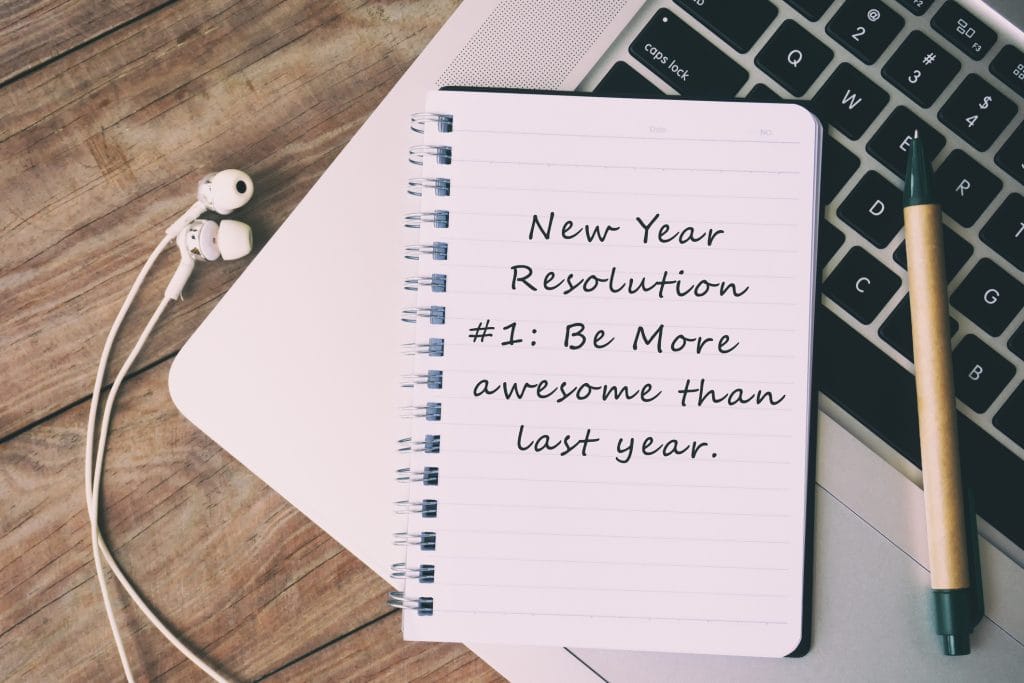 caps lock
Q
@
2
F2
W
#
3
F3
E
$
4
R
D
T
C
G
B
Date
NO.
New Year
Resolution
#1: Be More
awesome than
last year.